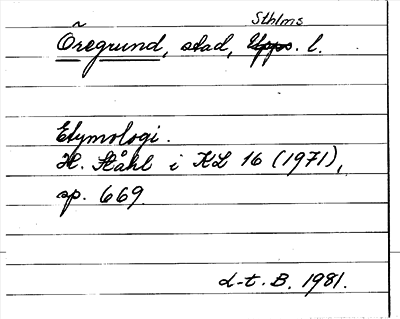 Sthlms
Öregrund, stad, Upps. l.
Etymologi.
H. Ståhl i KL 16 (1971),
sp. 669.
L-t. B. 1981.